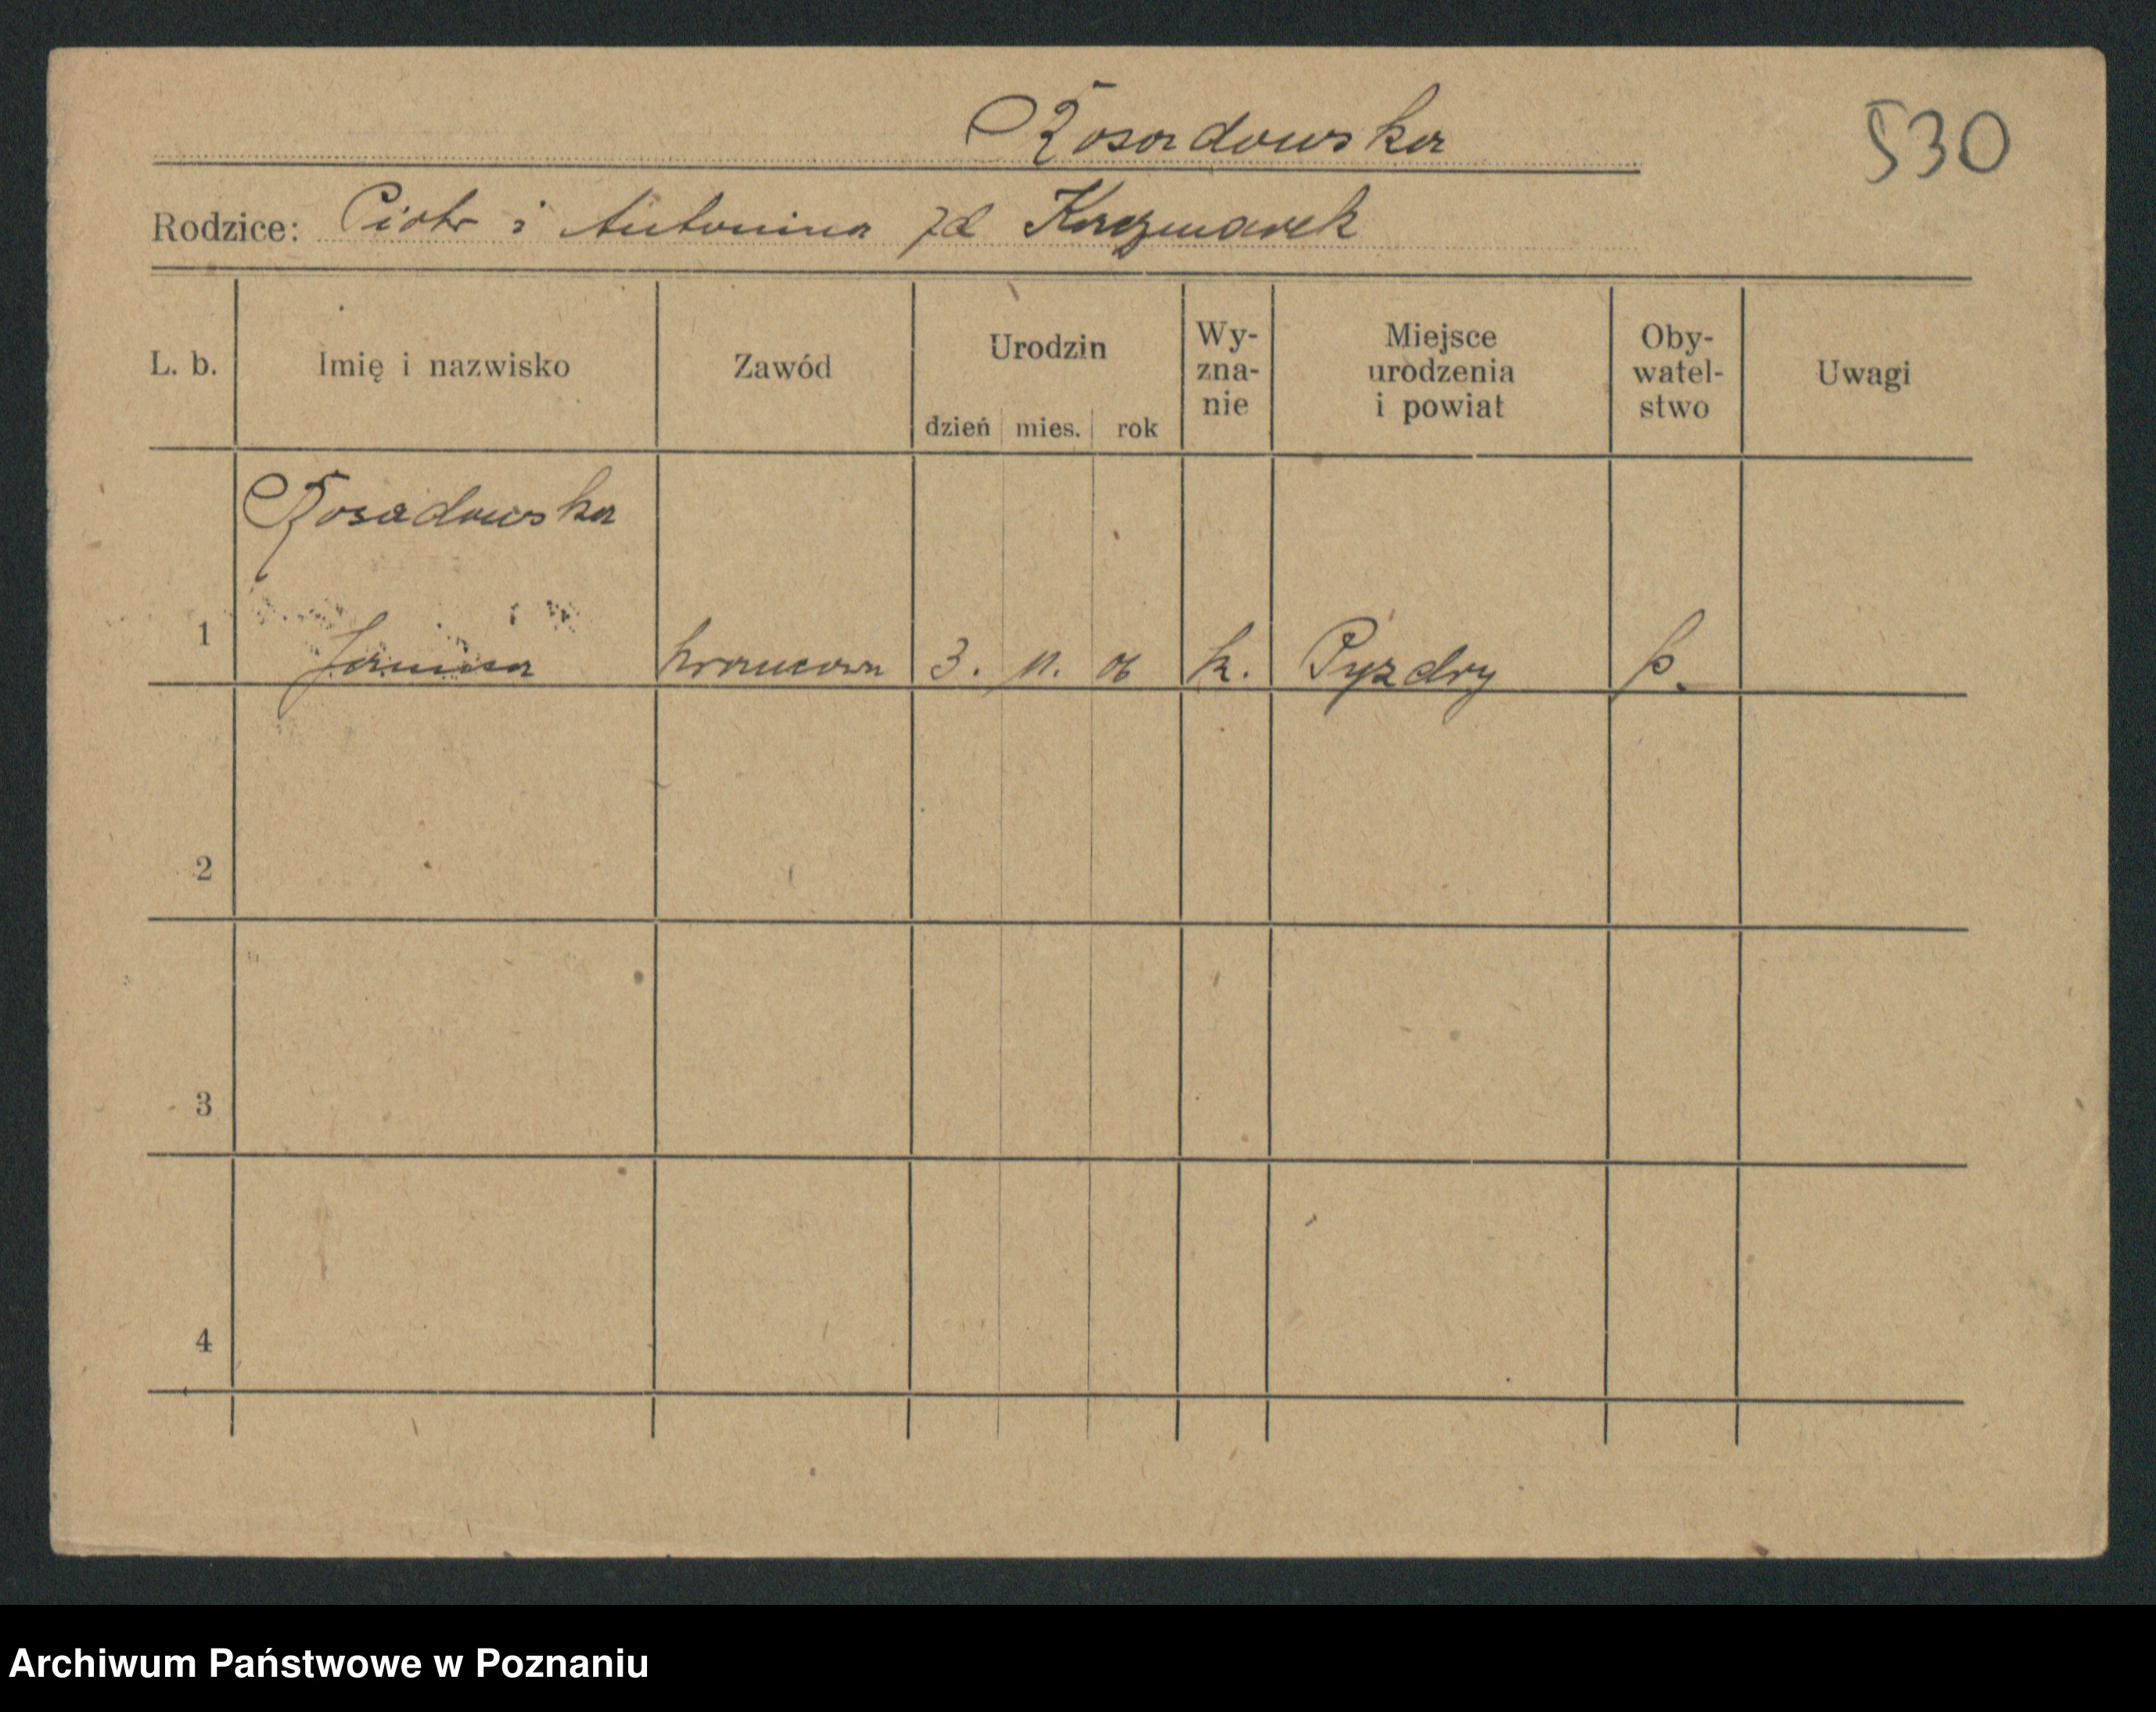 Rosadowska
530
Rodzice: Piotr i Antonina zd Kaczmarek
L. b. Imię i nazwisko Zawód Urodzin dzień mies. rok Wy-zna-nie Miejsce urodzenia i powiat Oby-watel-stwo Uwagi
Rosadowska
1 Janina krawcowa 3. 11. 06 k. Pyzdry p.
2
3
4
Archiwum Państwowe w Poznaniu